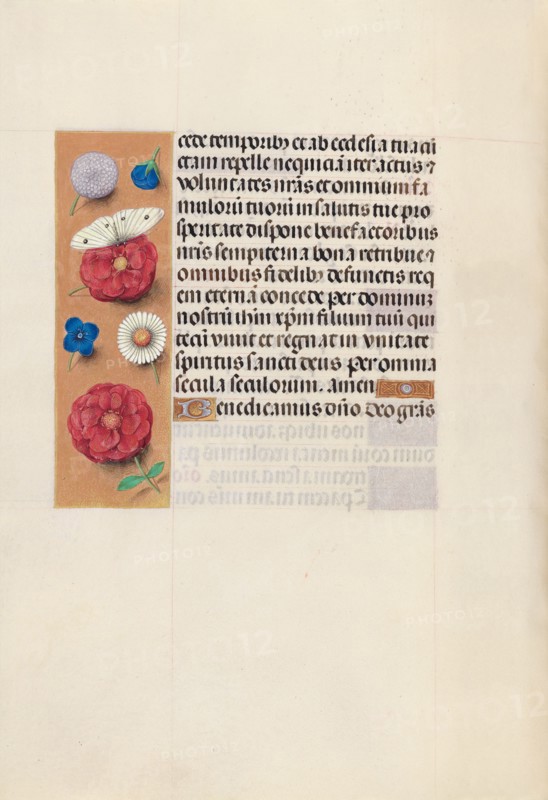 cede temporibꝫ et ab ecclesia tua cū
ctam repelle nequiciā iter actus ⁊
voluntates nr̄as et omnium fa
mulorū tuorū in salutis tue pro
speritate dispone benefactoribus
nr̄is sempiterna bona retribue ⁊
omnibus fidelibꝫ defunctis req
em eternā concede per dominū
nostrū ihm̄ xp̄m filium tuū qui
tecū vivit et regnat in unitate
spiritus sancti deus per omnia
secula seculorum. amen
Benedicamus dn̄o deo grās